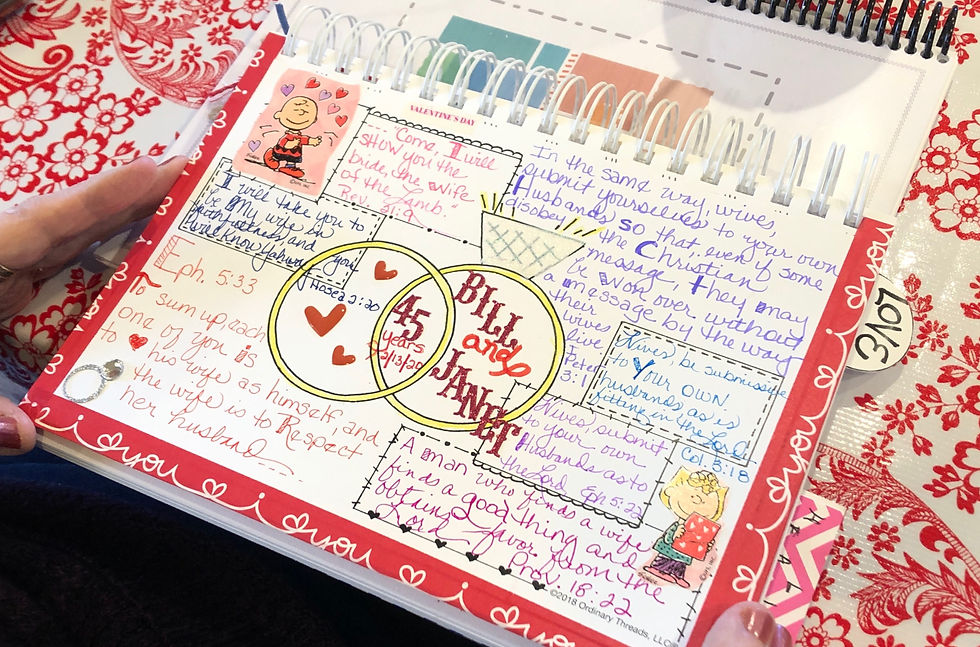 VALENTINE'S DAY
"Come, I will
show you the
bride, the Wife
of the Lamb."
Rev. 21:9
I will take you to
be My wife in
faithfulness, and you
will know Yahweh.
Hosea 2:20
In the same way, wives,
submit yourselves to your own
Husbands so that, even if some
disobey the Christian
message, They may
be Won over without
a message by the way
their
wives
live
Peter
3:1
Eph. 5:33
To sum up, each
one of you is
to his wife as himself, and
the wife is to Respect
her husband
45
years
BILL
and
JANET
Wives, be submissive
to Your own
husbands, as is
fitting in the Lord
Col 3:18
Wives, submit
to your own
Husbands as to
the Lord Eph 5:22
A man who finds a wife
finds a good thing and
obtains favor from the
Lord Prov. 18:22
©2018 Ordinary Threads, LLC
i you i you i you i you
i you i you
3/07